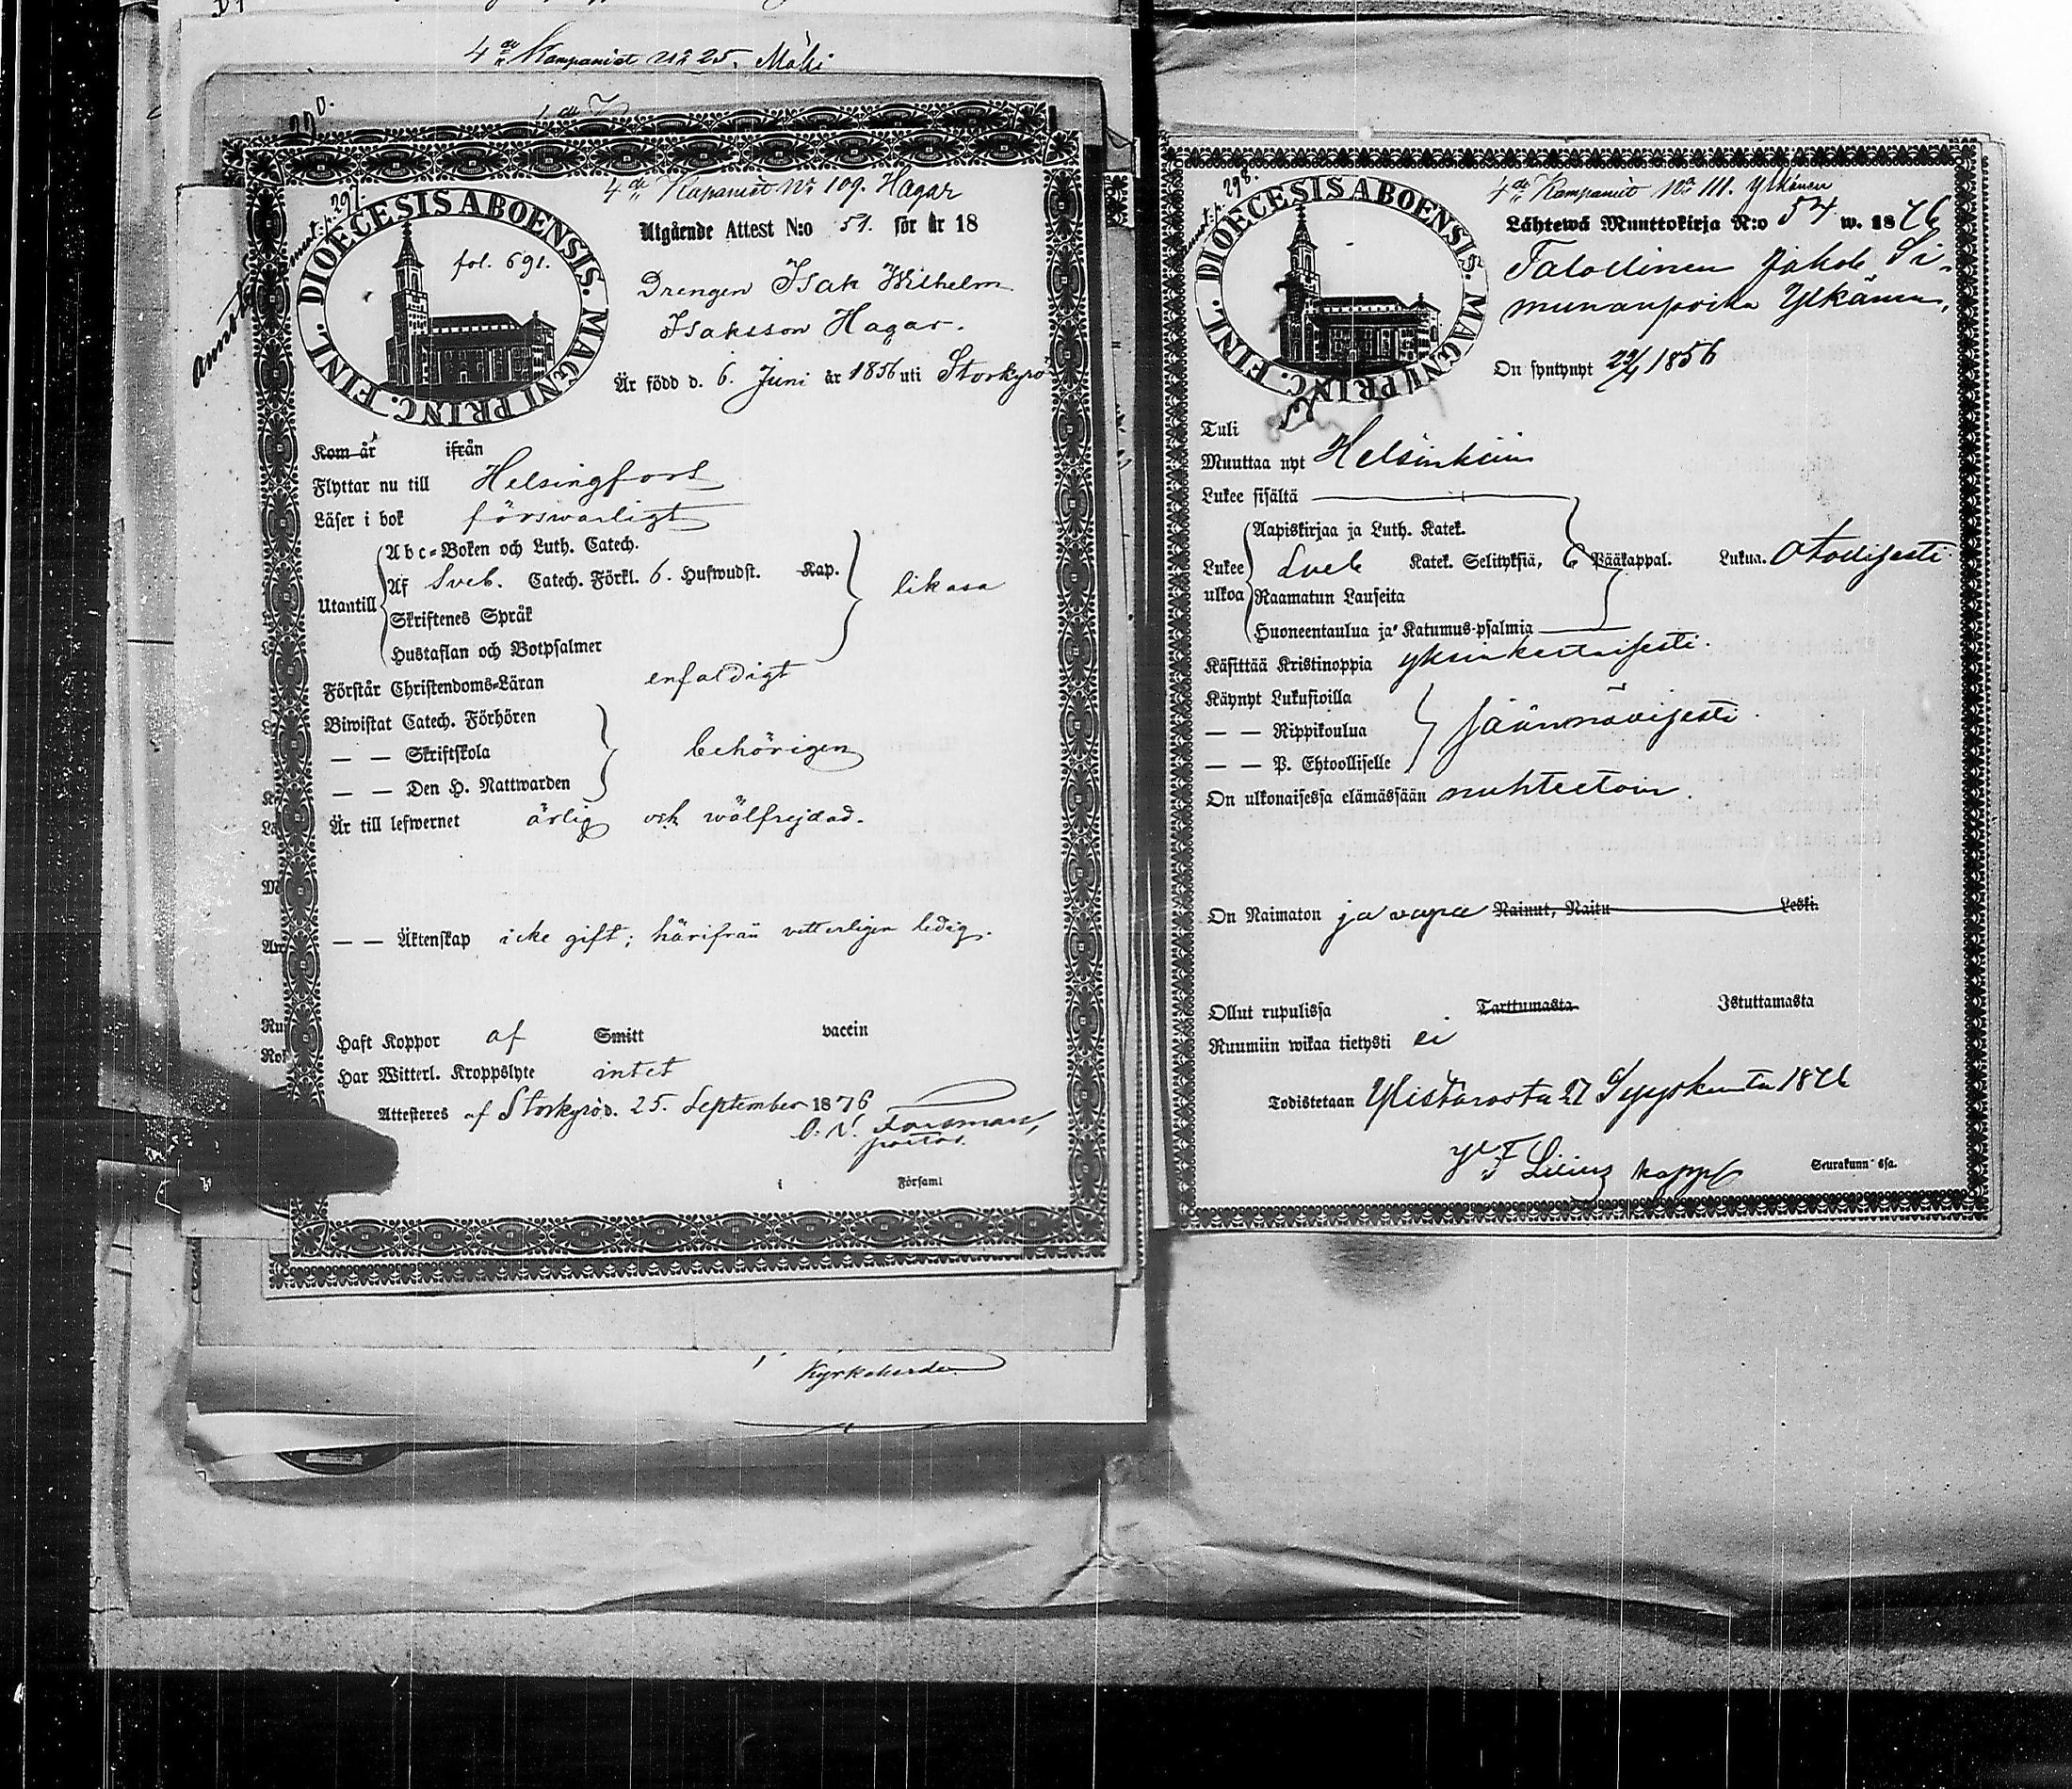 4de Kompaniet No 25. Mäki
290.
annot. p. 297.
DIOECESIS ABOENSIS. MAGNI PRINC. FINL.
fol. 691.
4de Kapaniet No 109. Hagar
Utgående Attest N:o 51. för år 18
Drengen Isak Wilhelm
Isaksson Hagar.
Är född d. 6. Juni år 1856 uti Storkyrö
Kom år ifrån
Flyttar nu till Helsingfors
Läser i bok förswarligt
Utantill
Abc-Boken och Luth. Catech.
Af Sveb. Catech. Förkl. 6. Hufwudst. Kap.
Skriftenes Språk
Hustaflan och Botpsalmer
likasa
Förstår Christendoms-Läran enfaldigt
Biwistat Catech. Förhören
— — Skriftskola
— — Den H. Nattwarden
behörigen
Är till lefwernet ärlig och wälfrejdad.
— — Äktenskap icke gift; härifrån vetterligen ledig.
Haft Koppor af Smitt vaccin
Har Witterl. Kroppslyte intet
Attesteres af Storkyrö d. 25. September 1876
Forsman,
pastor.
i Församl
Kyrkoherde
298.
DIOECESIS ABOENSIS. MAGNI PRINC. FINL.
4de Kompaniet No 111. Ylkänen
Lähtewä Muuttokirja N:o 54 w. 1876
Talollinen Jakob Si-
munanpoika Ylkänen,
On syntynyt 24/4 1856
Tuli
Muuttaa nyt Helsinkiin
Lukee sisältä
Lukee ulkoa
Aapiskirjaa ja Luth. Katek.
Sveb Katek. Selityksiä, 6 Pääkappal. Lukua.
Raamatun Lauseita
Huoneentaulua ja Katumus-psalmia
Käsittää Kristinoppia yksinkertaisesti.
Käynyt Lukusioilla
— — Rippikoulua
— — P. Ehtoolliselle
säännöllisesti.
On ulkonaisessa elämässään nuhteetoin.
On Naimaton ja vapa Nainut, Naitu Leski.
Ollut rupulissa Tarttumasta Istuttamasta
Ruumiin wikaa tietysti ei
Todistetaan Ylistarosta 27 Syyskuuta 1876
Lilius kappl
Seurakunnassa.